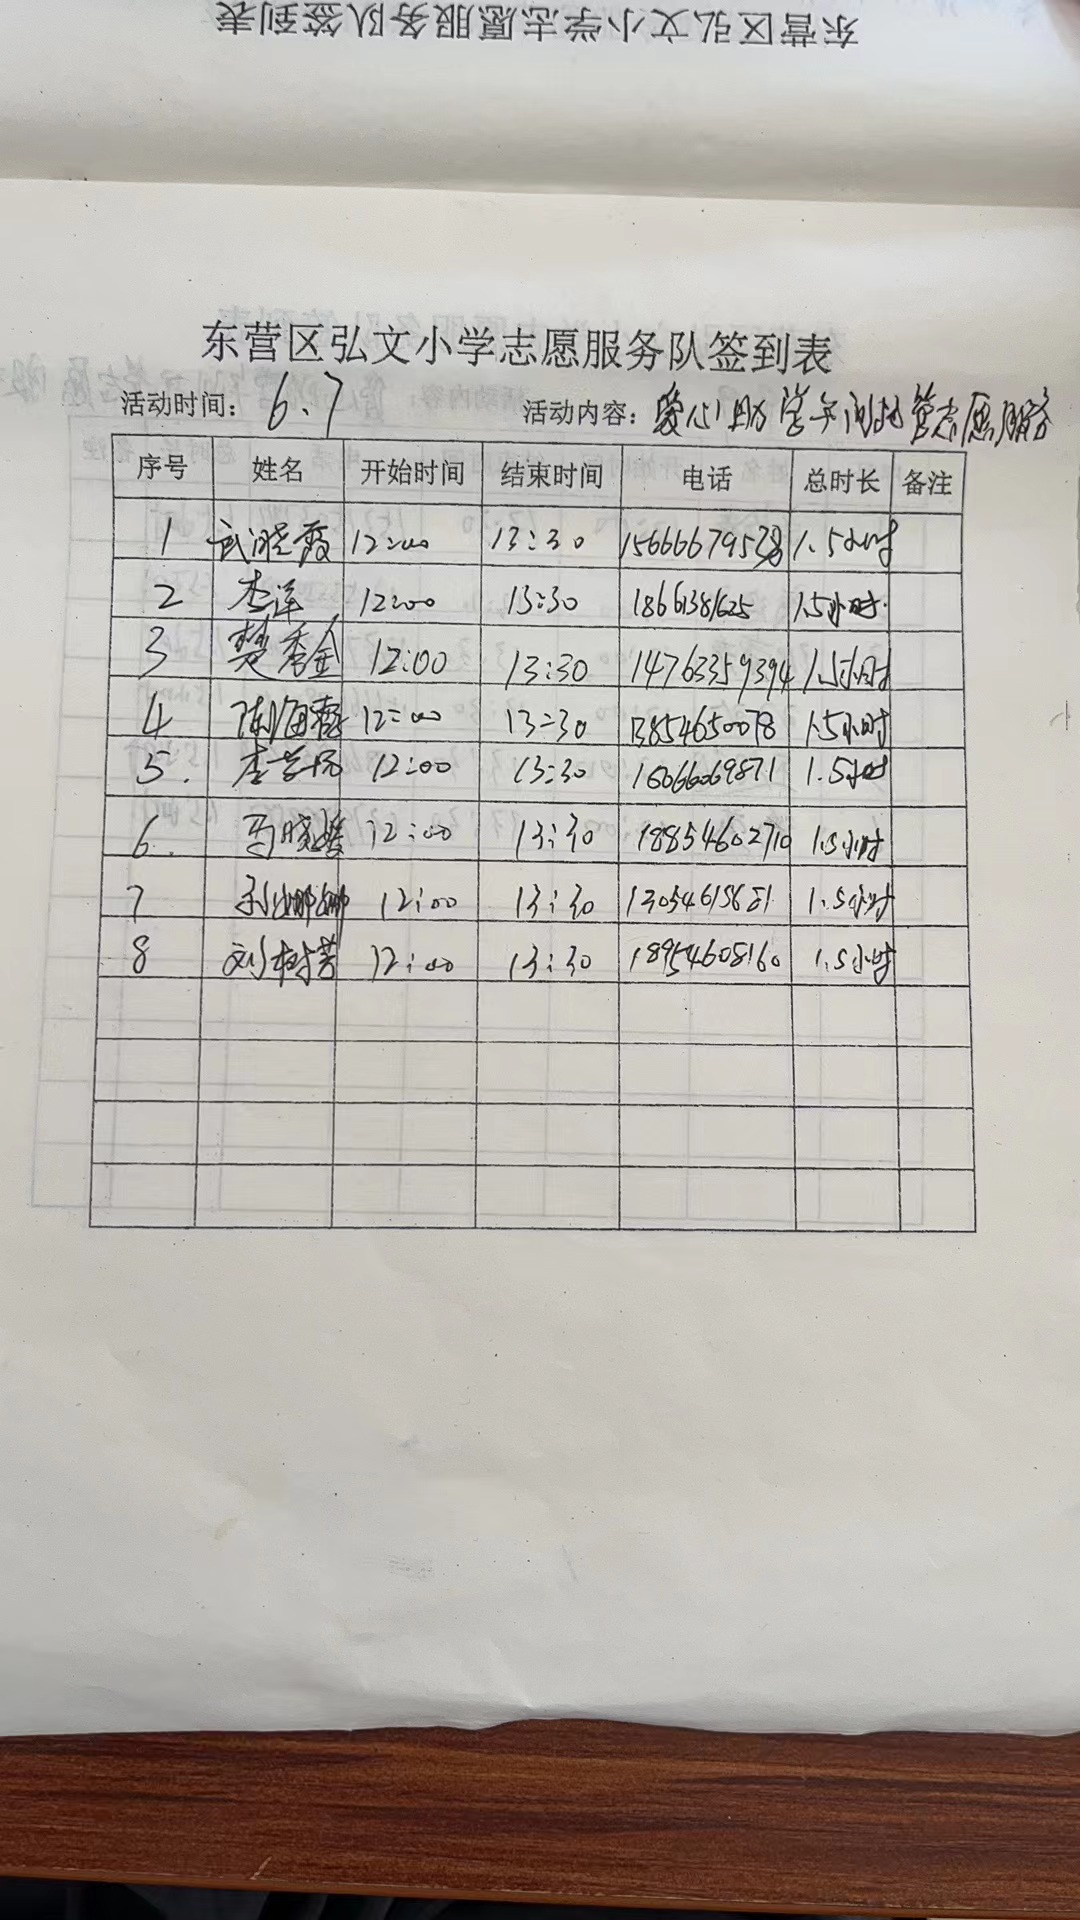 东营区弘文小学志愿服务队签到表
东营区弘文小学志愿服务队签到表
活动时间: 6.7 活动内容: 爱心助学午间托管志愿服务
序号 姓名 开始时间 结束时间 电话 总时长 备注
1 武晓霞 12:00 13:30 1.5小时
2 李洋 12:00 13:30 18661381625 1.5小时.
3 楚秀金 12:00 13:30 14763359394 1.5小时
4 陈海霞 12:00 13:30 13854650078 1.5小时
5. 12:00 13:30 16066069871 1.5小时
6. 马晓媛 12:00 13:30 18854602710 1.5小时
7 孙娜娜 12:00 13:30 1.5小时
8 刘树芳 12:00 13:30 18954608160 1.5小时